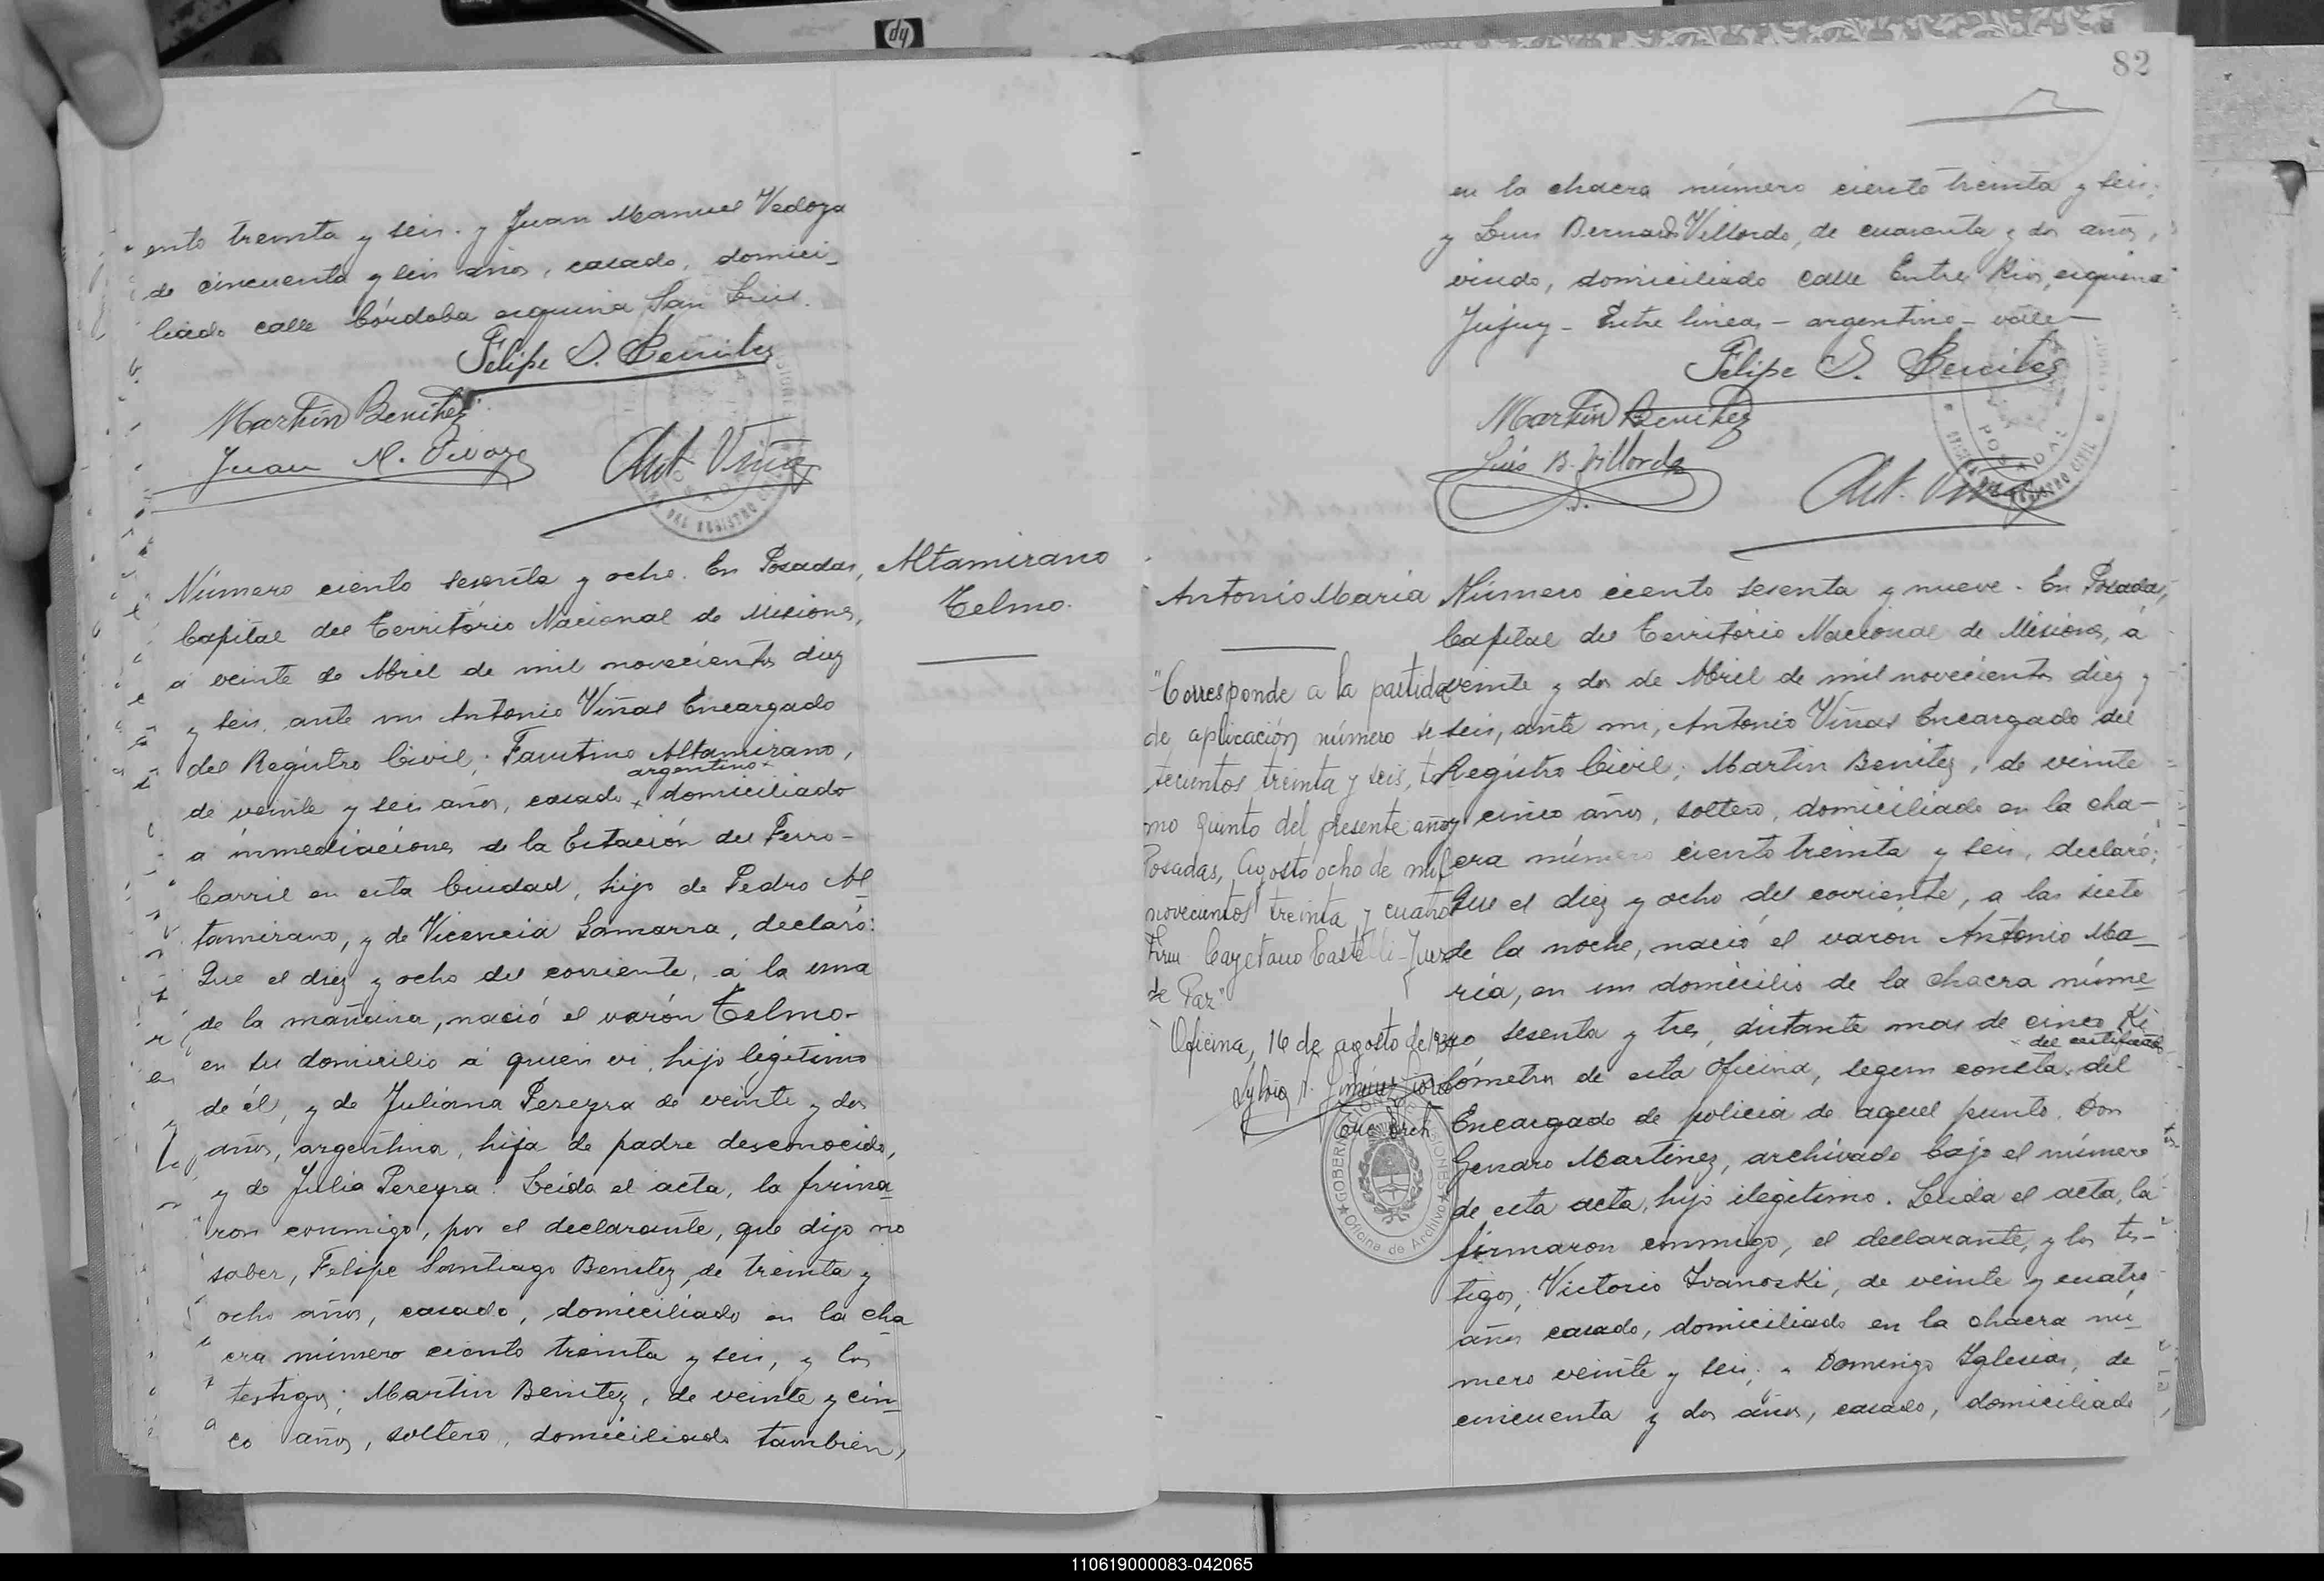 ento treinta y seis. y Juan Manuel Vedoya
de cincuenta y seis años, casado, domici-
liado calle Córdoba esquina San Luis.
Felipe S. Benitez
Martin Benitez
Juan M. Vedoya
Ant. Viñas
Número ciento sesenta y ocho. En Posadas,
Capital del Territorio Nacional de Misiones,
á veinte de Abril de mil novecientos diez
y seis, ante mi Antonio Viñas Encargado
del Registro Civil; Faustino Altamirano,
argentino
de veinte y seis años, casado x domiciliado
a inmediaciones de la Estación del Ferro-
Carril en esta Ciudad, hijo de Pedro Al-
tamirano, y de Vicencia Samarra, declaró:
Que el diez y ocho del corriente, á la una
de la mañana, nació el varón Telmo-
en su domicilio á quien vi, hijo legitimo
de él, y de Juliana Pereyra de veinte y dos
años, argentina, hija de padre desconocido,
y de Julia Pereyra. Leida el acta, la firma-
ron conmigo, por el declarante, que dijo no
saber, Felipe Santiago Benitez, de treinta y
ocho años, casado, domiciliado en la cha-
cra número ciento treinta y seis, y los
testigos; Martin Benitez, de veinte y cin-
co años, soltero, domiciliado tambien,
Altamirano
Telmo.
82
en la chacra número ciento treinta y seis.
y Luis Bernardo Villordo, de cuarenta y dos años,
viudo, domiciliado calle Entre Rios, esquina
Jujuy - Entre lineas - argentino - vale -
Felipe S. Benitez
Martin Benitez
Luis B. Villordo
Ant. Viñas
Antonio Maria
"Corresponde a la partida
de aplicación número se
tecientos treinta y seis, to
mo quinto del presente año
Posadas, Agosto ocho de mil
novecientos treinta y cuatro
Firm. Cayetano Castelli - Juez
de Paz"
Oficina, 16 de agosto de 1934
GOBERNACION MISIONES
Oficina de Archivo
Número ciento sesenta y nueve. En Posadas,
Capital del Territorio Nacional de Misiones, á
veinte y dos de Abril de mil novecientos diez y
seis, ante mi, Antonio Viñas Encargado del
Registro Civil; Martin Benitez, de veinte
y cinco años, soltero, domiciliado en la cha-
cra número ciento treinta y seis, declaró;
Que el diez y ocho del corriente, a las siete
de la noche, nació el varón Antonio Ma-
ria, en un domicilio de la chacra núme-
ro sesenta y tres, distante mas de cinco Ki
del certificado
lómetros de esta Oficina, segun consta del
Encargado de policia de aquel punto. Don
Genaro Martinez, archivado bajo el número
de esta acta, hijo ilegitimo. Leida el acta, la
firmaron conmigo, el declarante, y los tes-
tigos; Victorio Ivanoski, de veinte y cuatro
años casado, domiciliado en la chacra nu-
mero veinte y seis; y Domingo Iglesias, de
cincuenta y dos años, casado, domiciliado
110619000083-042065